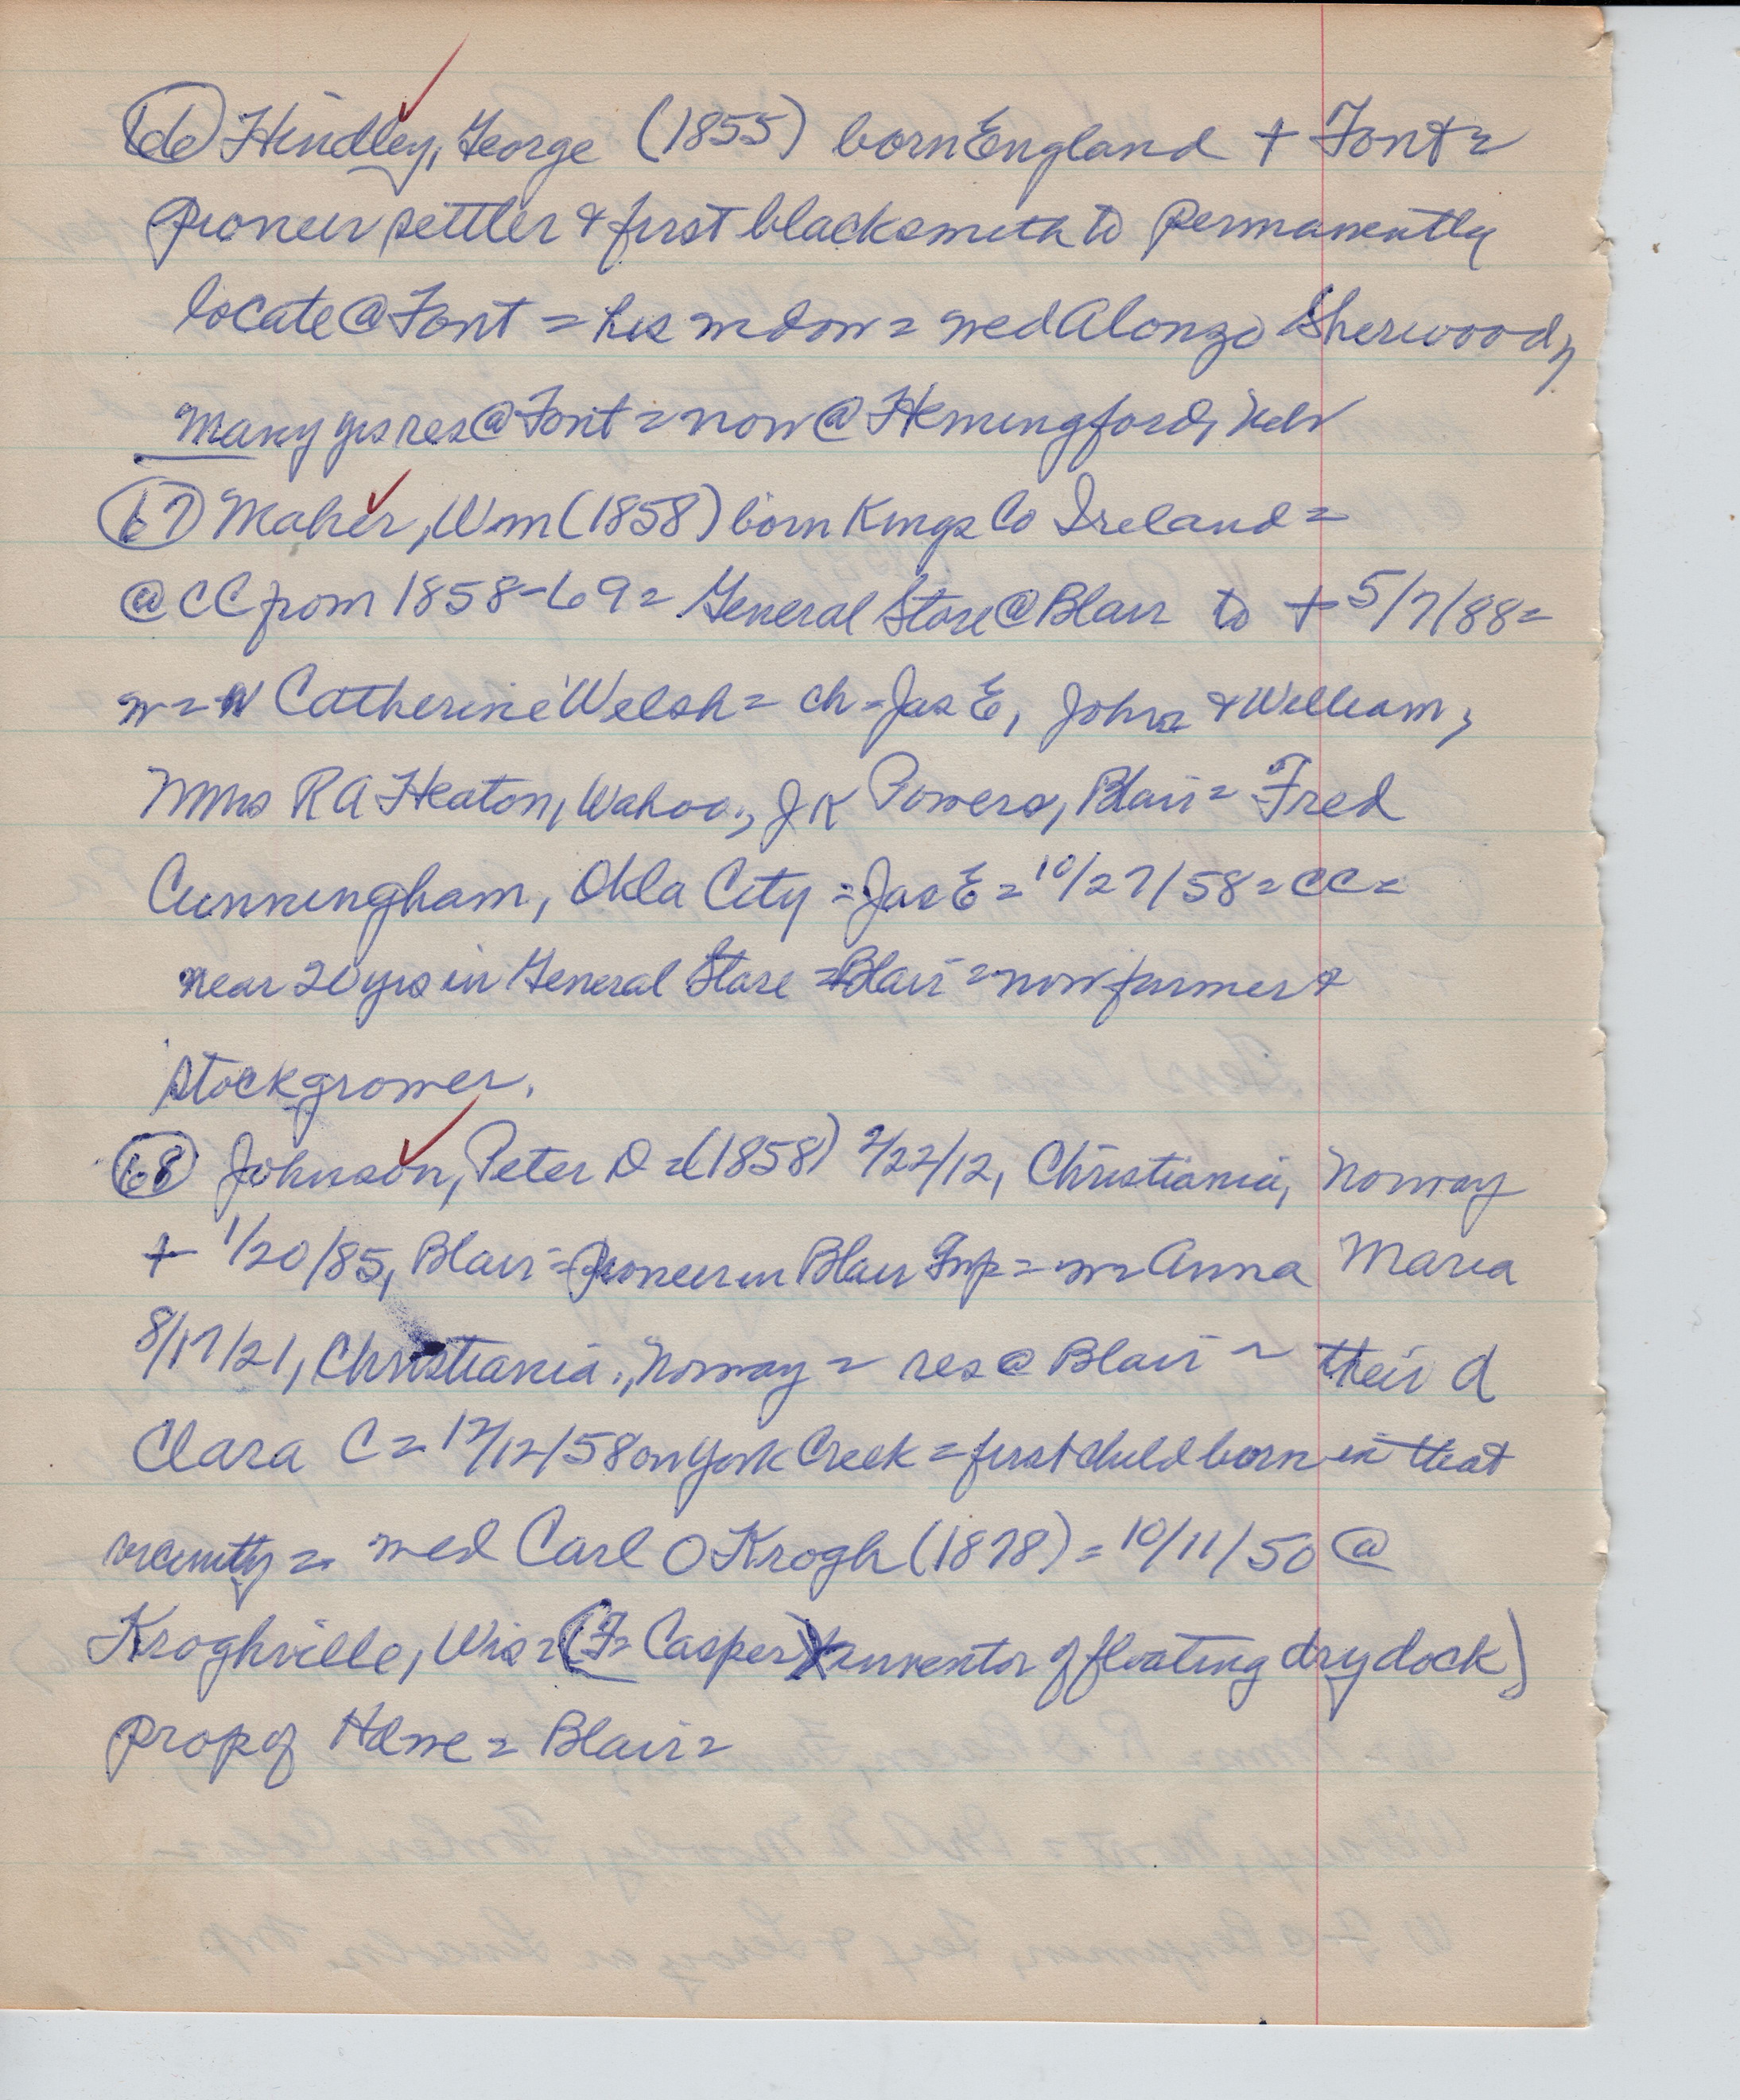 66 Hindley, George (1855) born England + Font =
pioneer settler & first blacksmith to permanently
locate @ Font = his widow = med Alonzo Sherwood,
many yrs res @ Font = now @ Hemingford, Neb
67 Maher, Wm (1858) born Kings Co Ireland =
@ CC from 1858-69 = General Store @ Blair to + 5/7/88 =
m = Catherine Welsh = ch = Jas E, John & William,
Mms RA Heaton, Wahoo, JK Powers, Blair = Fred
Cunningham, Okla City = Jas E = 10/27/58 = CC =
near 20 yrs in General Store = Blair = now farmer &
stockgrower.
68 Johnson, Peter D = (1858) 2/22/12, Christiania, Norway
+ 1/20/85, Blair = pioneer in Blair Twp = m Anna Maria
8/17/21, Christiania, Norway = res @ Blair = their d
Clara C = 12/12/58 on York Creek = first child born in that
vicinity = med Carl O Krogh (1878) = 10/11/50 @
Kroghville, Wis = (F = Casper inventor of floating dry dock)
prop of Home = Blair =